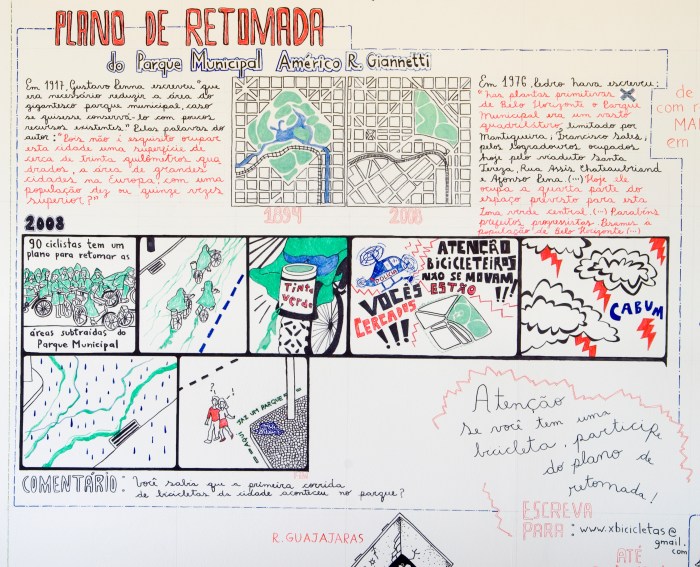 PLANO DE RETOMADA
do Parque Municipal Américo R. Giannetti
Em 1917, Gustavo Penna escreveu "que
era necessário reduzir a área do
gigantesco parque municipal, caso
se quisesse conservá-lo com poucos
recursos existentes." Pelas palavras do
autor: "Pois não é esquisito ocupar
esta cidade uma superfície de
cerca de trinta quilômetros qua
drados, a área de grandes
cidades na Europa com uma
população dez ou quinze vezes
superior?"
1894
2008
Em 1976, Pedro Nava escreveu:
"Nas plantas primitivas
de Belo Horizonte o Parque
Municipal era um vasto
quadrilátero, limitado por
Mantiqueira, Francisco Sales,
pelos logradouros ocupados
hoje pelo viaduto Santa
Tereza, Rua Assis Chateaubriand
e Afonso Pena (...) Hoje ele
ocupa a quarta parte do
espaço previsto para esta
zona verde central. (...) Parabéns
prefeitos progressistas. Pêsames à
população de Belo Horizonte (...)
de
com
MA
em
2008
90 ciclistas tem um
plano para retomar as
áreas subtraídas do
Parque Municipal
Tinta
verde
POLÍCIA
ATENÇÃO
BICICLETEIROS
NÃO SE MOVAM!
VOCÊS ESTÃO
CERCADOS
!!!
!!!
CABUM
? !
JAZ UM PARQUE
AQUI
COMENTÁRIO: Você sabia que a primeira corrida
de bicicletas da cidade aconteceu no parque?
Atenção
se você tem uma
bicicleta, participe
do plano de
retomada!
ESCREVA
PARA: www.xbicicletas@
gmail.
com
ATÉ
R. GUAJAJARAS